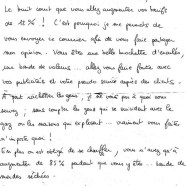 Le bruit court que vous allez augmenter vos tarifs
de 15% ! C'est pourquoi je me permets de
vous envoyer ce courrier afin de vous faire partager
mon opinion. Vous êtes une belle brochette d'enculés,
une bande de voleurs... allez vous faire foutre avec
vos publicités et votre pseudo service auprès des clients.
A part racketter les gens, je ne vois pas à quoi vous
servez, sans compter les gens qui se suicident avec le
gaz ou les maisons qui explosent... vraiment vous faites
n'importe quoi !
En plus on est obligé de se chauffer, vous n'avez qu'à
augmenter de 85% pendant que vous y êtes... bande de
merdes séchées.